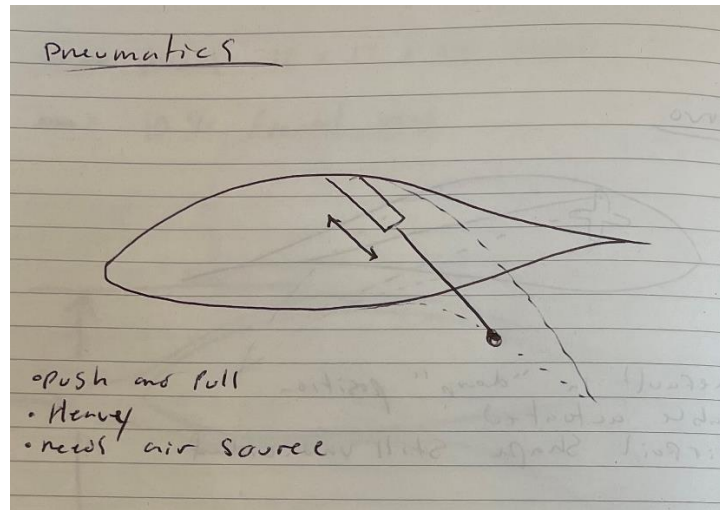 Pneumatics
• Push and Pull
• Heavy
• needs air source